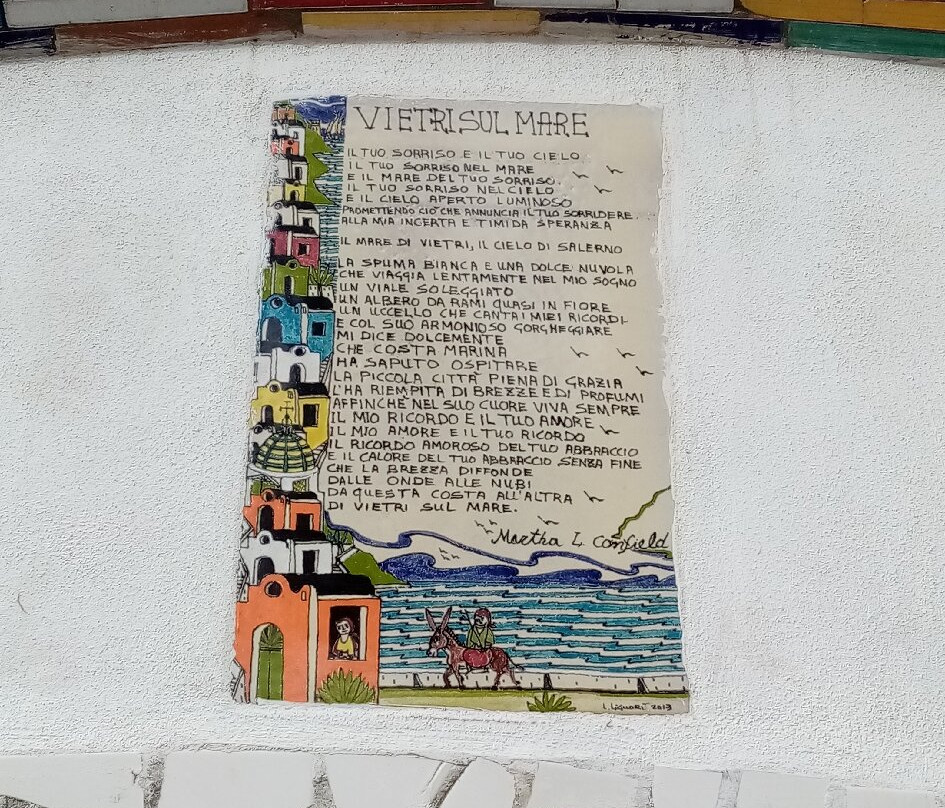 VIETRI SUL MARE
IL TUO SORRISO E IL TUO CIELO
IL TUO SORRISO NEL MARE
E IL MARE DEL TUO SORRISO.
IL TUO SORRISO NEL CIELO
E IL CIELO APERTO LUMINOSO
PROMETTENDO CIÒ CHE ANNUNCIA IL TUO SORRIDERE.
ALLA MIA INCERTA E TIMIDA SPERANZA
IL MARE DI VIETRI, IL CIELO DI SALERNO
LA SPUMA BIANCA E UNA DOLCE NUVOLA
CHE VIAGGIA LENTAMENTE NEL MIO SOGNO
UN VIALE SOLEGGIATO
UN ALBERO DA RAMI QUASI IN FIORE
UN UCCELLO CHE CANTA I MIEI RICORDI
E COL SUO ARMONIOSO GORGHEGGIARE
MI DICE DOLCEMENTE
CHE COSTA MARINA
HA SAPUTO OSPITARE
LA PICCOLA CITTÀ PIENA DI GRAZIA
L'HA RIEMPITA DI BREZZE E DI PROFUMI
AFFINCHÈ NEL SUO CUORE VIVA SEMPRE
IL MIO RICORDO E IL TUO AMORE
IL MIO AMORE E IL TUO RICORDO
IL RICORDO AMOROSO DEL TUO ABBRACCIO
E IL CALORE DEL TUO ABBRACCIO SENZA FINE
CHE LA BREZZA DIFFONDE
DALLE ONDE ALLE NUBI
DA QUESTA COSTA ALL'ALTRA
DI VIETRI SUL MARE.
Martha L. Canfield
L. LIGUORI 2013